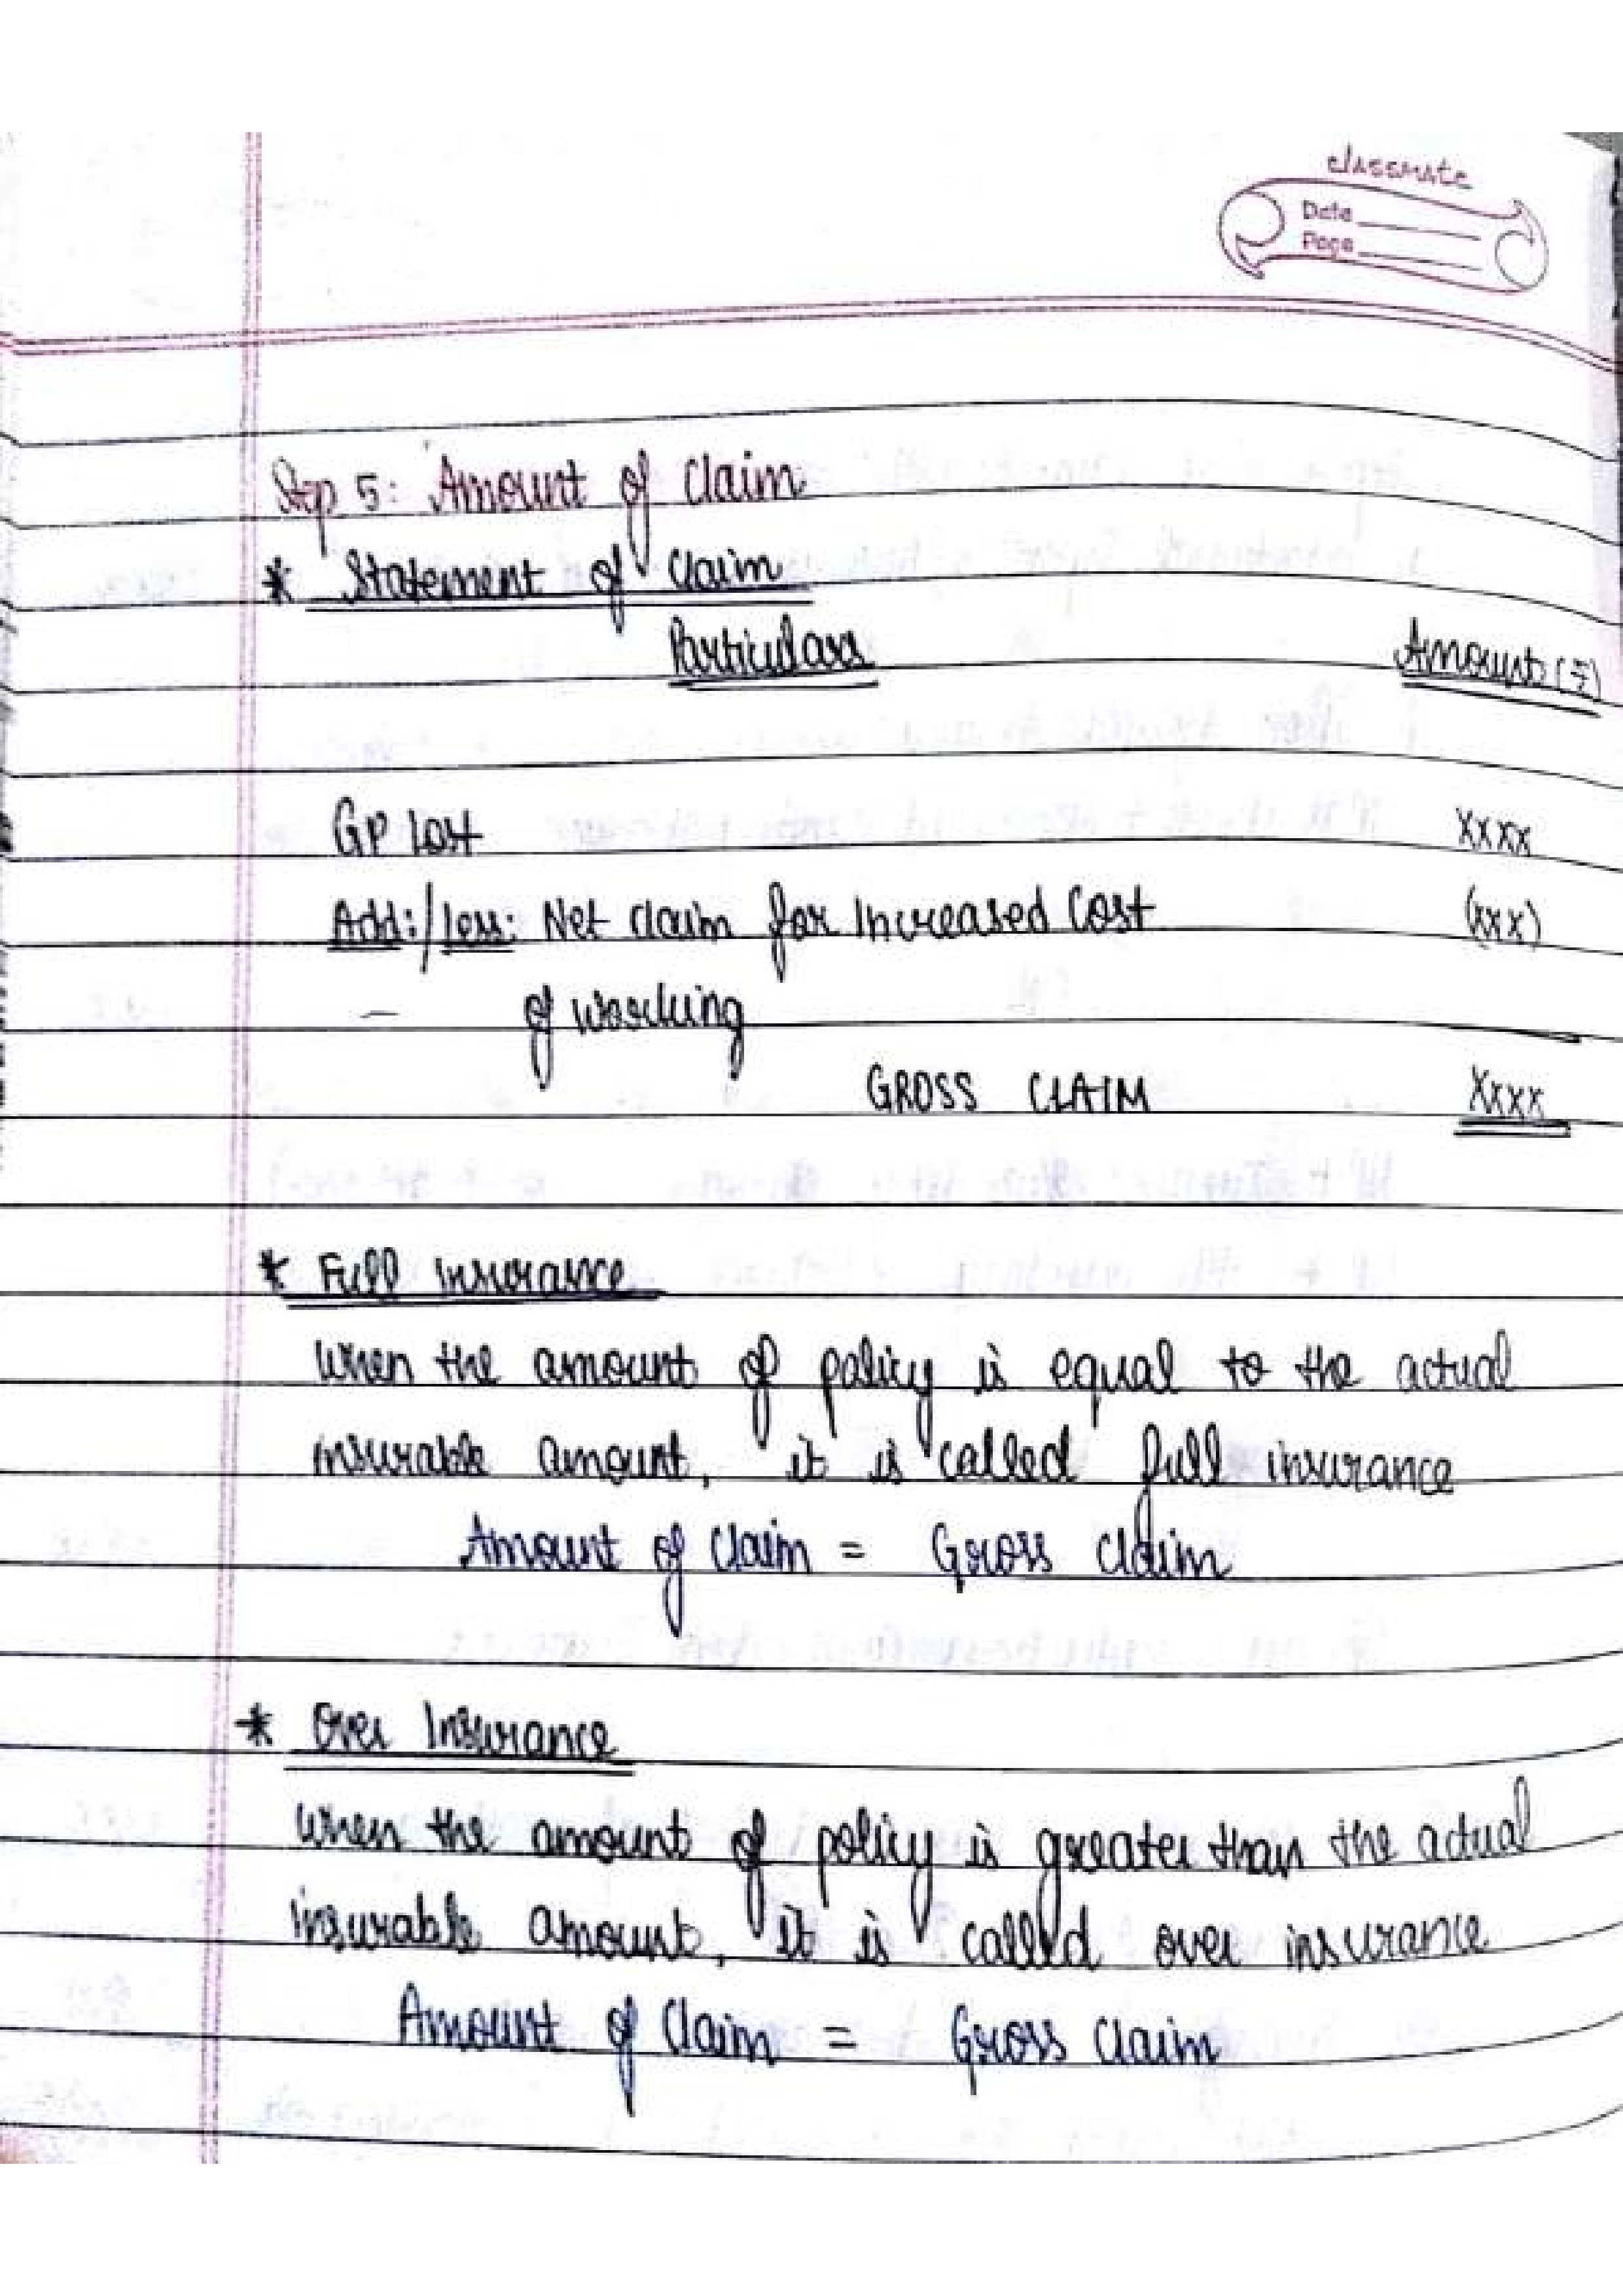 classmate
Date
Page
Step 5: Amount of Claim
* Statement of Claim
Particulars Amount (₹)
GP Lost xxxx
Add:/Less: Net claim for Increased Cost (xxx)
of working
GROSS CLAIM xxxx
* Full Insurance
When the amount of policy is equal to the actual
insurable amount, it is called full insurance
Amount of Claim = Gross Claim
* Over Insurance
When the amount of policy is greater than the actual
insurable amount, it is called over insurance
Amount of Claim = Gross Claim